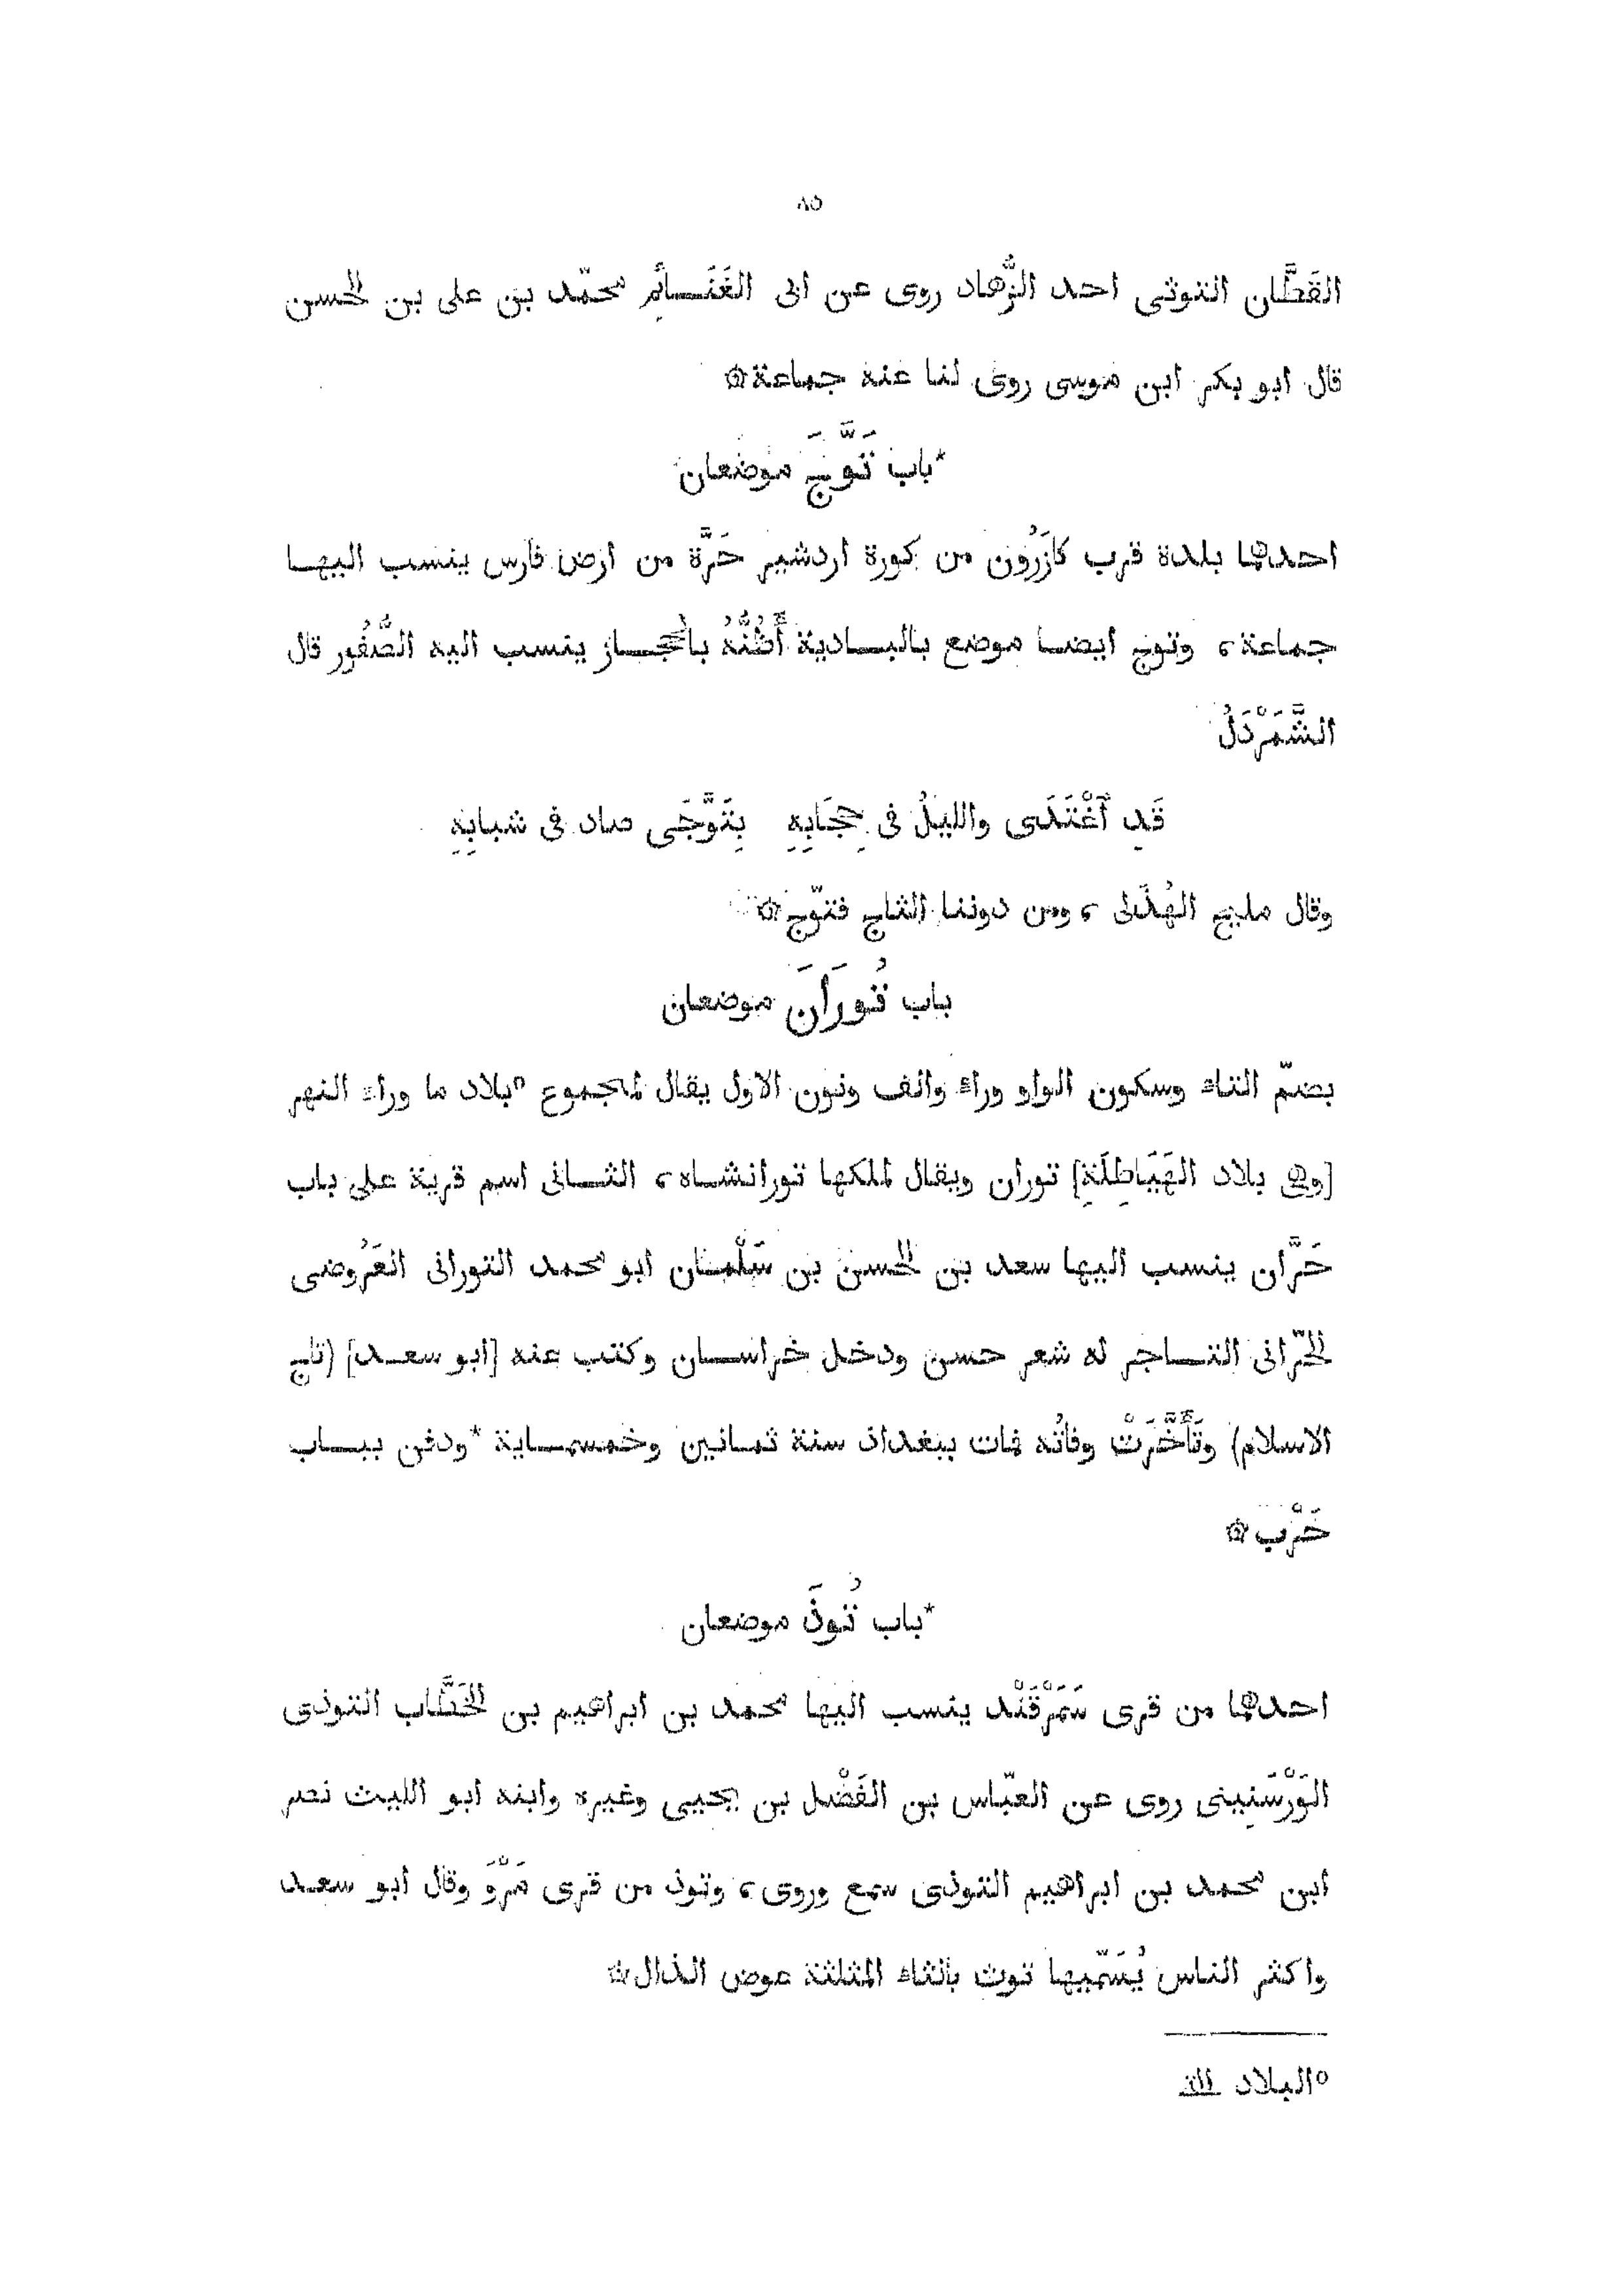 ٨٥
القَطَّان التوثى احد الزُّهاد روى عن ابى الغَنَـائِم محمّد بن على بن الحسن
قال ابو بكر ابن موسى روى لنا عنه جماعة۞
*باب تَوَّجَ موضعان
احدهما بلدة قرب كازَرُون من كورة اردشير خَرَّة من ارض فارس ينسب اليهـا
جماعة، وتوج ايضـا موضع بالبـادية أَظُنُّهُ بالحجـاز ينسب اليه الصُّقُور قال
الشَّمَرْدَلُ
قَدِ آغْتَدَى والليلُ فى حِجَابِهِ بِتَوَّجَى صاد فى شبابِهِ
وقال مليح الهُذَلى، ومن دوننا الثاج فتوّج۞
باب تُورَانَ موضعان
بضمّ التاء وسكون الواو وراء والف ونون الاول يقال لمجموع °بلاد ما وراء النهر
[وهى بلاد الهَيَاطِلَةِ] توران ويقال لملكها تورانشـاه، الثـانى اسم قرية على باب
حَرَّان ينسب اليها سعد بن الحسن بن سَلْمـان ابو محمد التورانى العَرُوضى
الحَرّانى التـاجر له شعر حسن ودخل خراسـان وكتب عنه [ابو سعـد] (تاج
الاسلام) وتَأَخَّرَتْ وفاتُه فمات ببغداد سنة ثمـانين وخمسمـاية *ودفن ببـاب
حَرْب۞
*باب تُوذَ موضعان
احدهما من قرى سَمَرْقَنْد ينسب اليها محمد بن ابراهيم بن الخَطَّاب التوذى
الوَرْسَنِينى روى عن العبّاس بن الفَضْل بن يحيى وغيره وابنه ابو الليث نصر
ابن محمد بن ابراهيم التوذى سمع وروى، وتوذ من قرى مَرْوَ وقال ابو سعـد
واكثر الناس يُسَمّيها توث بالثاء المثلثة عوض الذال۞
°البلاد التى